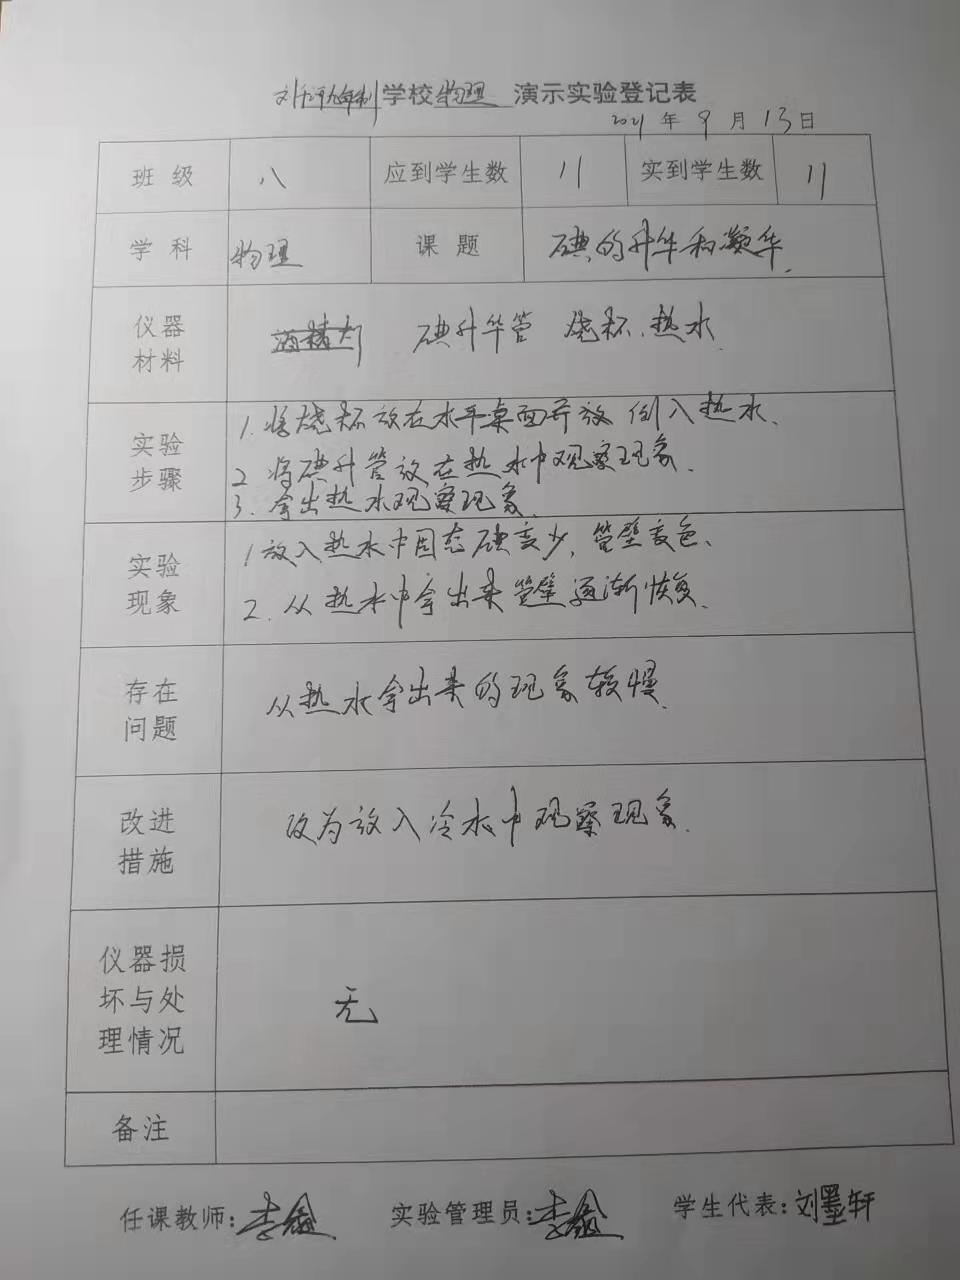 刘 九年制学校物理 演示实验登记表
2021 年 9 月 13 日
班 级 八 应到学生数 11 实到学生数 11
学 科 物理 课 题 碘的升华和凝华.
仪器
材料
碘升华管 烧杯.热水
实验
步骤
1.将烧杯放在水平桌面并放 倒入热水.
2 将碘升管放在热水中观察现象.
3.拿出热水观察现象.
实验
现象
1放入热水中固态碘变少,管壁变色.
2.从热水中拿出来管壁逐渐恢复.
存在
问题
从热水拿出来的现象较慢.
改进
措施
改为放入冷水中观察现象.
仪器损
坏与处
理情况
无
备注
任课教师:李鑫 实验管理员:李鑫 学生代表:刘墨轩